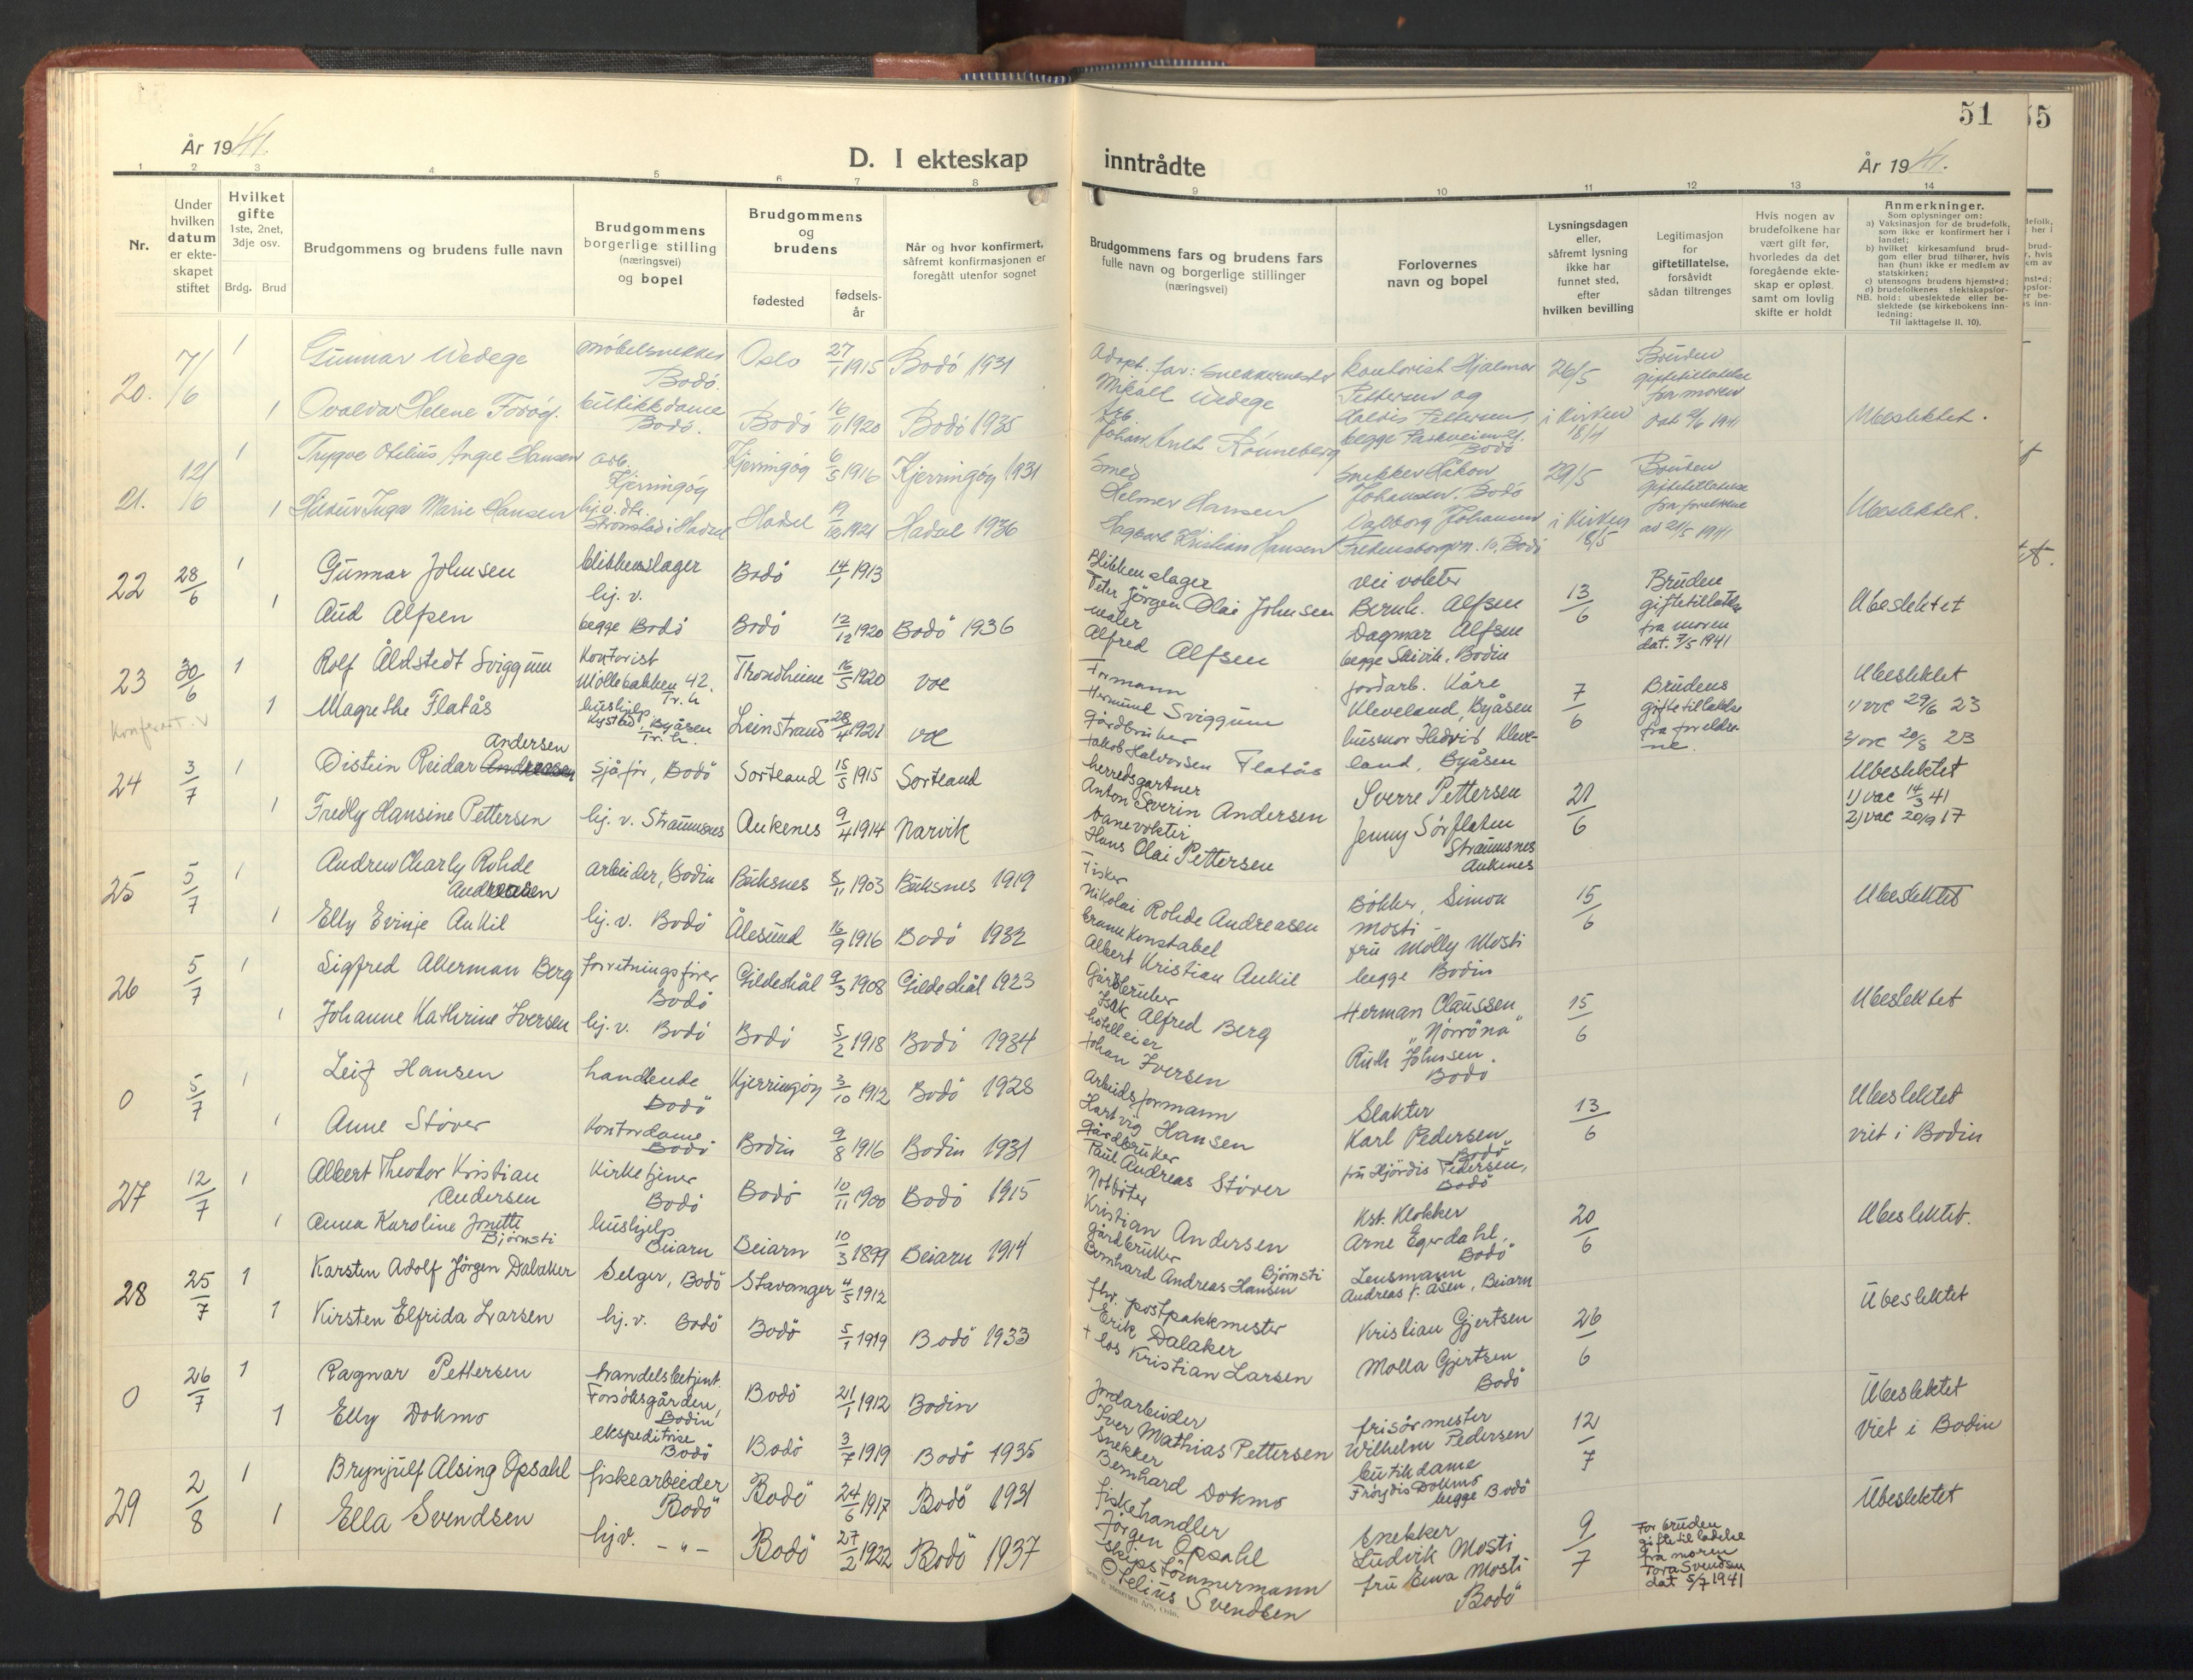 År 1941.
D. I ekteskap
inntrådte
År 1941.
51
55
1 2 3 4 5 6 7 8 9 10 11 12 13 14
Nr.
Under hvilken datum er ekte-skapet stiftet
Hvilket gifte 1ste, 2net, 3dje osv.
Brdg. Brud
Brudgommens og brudens fulle navn
Brudgommens borgerlige stilling (næringsvei) og bopel
Brudgommens og brudens
fødested
fødsels-år
Når og hvor konfirmert, såfremt konfirmasjonen er foregått utenfor sognet
Brudgommens fars og brudens fars fulle navn og borgerlige stillinger (næringsvei)
Forlovernes navn og bopel
Lysningsdagen eller, såfremt lysning ikke har funnet sted, efter hvilken bevilling
Legitimasjon for giftetillatelse, forsåvidt sådan tiltrenges
Hvis nogen av brudefolkene har vært gift før, hvorledes da det foregående ekte-skap er opløst, samt om lovlig skifte er holdt
Anmerkninger.
Som oplysninger om:
a) Vaksinasjon for de brudefolk, som ikke er konfirmert her i landet;
b) hvilket kirkesamfund brud-gom eller brud tilhører, hvis han (hun) ikke er medlem av statskirken;
c) utensogns brudens hjemsted;
d) brudefolkenes slektskapsfor-hold: ubeslektede eller be-slektede (se kirkebokens inn-ledning:
NB. Til iakttagelse II. 10).
20. 7/6 1 Gunnar Wedege møbelsnekker Bodö. Oslo 27/1 1915 Bodö 1931
Adopt. far: Snekkermester Mikall Wedege
kontorist Hjalmar Pettersen og
26/5 i kirken 18/4
Bruden giftetillatelse fra moren dat 2/6 1941
Ubeslektet.
1 Ovalda Helene Forøg. butikkdame Bodö. Bodö 16/11 1920 Bodö 1935
Arb. Johan Rönneberg
begge Bodö
21. 12/6 1 Trygve Otelius Angel Hansen arb. Kjerringöy Kjerringöy 6/5 1916 Kjerringöy 1931
Smed Helmer Hansen
Snekker Håkon Johansen. Bodö
29/5 i kirken 18/5
Bruden Giftetillatelse fra foreldrene av 21/5 1941
Ubeslektet.
1 Hildur Inga Marie Hansen hj.v. dtr. Hadsel 19/10 1921 Hadsel 1936
Hagbart Kristian Hansen
Valborg Johansen Fredensborgvn. 10, Bodö
22 28/6 1 Gunnar Johnsen blikkenslager Bodö 14/1 1913
Blikkenslager Peter Jörgen Olai Johnsen
Vei vokter Bernh. Alfsen
13/6
Bruden giftetillatelse fra moren dat. 7/5 1941
Ubeslektet
1 Aud Alfsen hj. v. begge Bodö Bodö 12/12 1920 Bodö 1936
maler Alfred Alfsen
Dagmar Alfsen begge Skivik, Bodin
23 30/6 1 Rolf Åldstedt Sviggum Kontorist Möllebakken 42. Tr.h Trondheim 16/5 1920 vol
Formann Hermund Sviggum
jordarb. Kåre Kleveland, Byåsen
7/6
Brudens giftetillatelse fra foreldre-ne.
Ubeslektet
1) vac 29/6 23
2) vac 20/8 23
Konfert. v
1 Magrethe Flatås hushjelp Kystad, Byåsen Tr.h. Leinstrand 28/4 1921 vol
Gårdbruker Jakob Halvorsen Flatås
husmor Hedvig Kleve-land, Byåsen
24 3/7 1 Oistein Reidar Andersen sjåför, Bodö Sortland 15/5 1915 Sortland
herredsgartner Anton Severin Andersen
Sverre Pettersen
21/6
Ubeslektet
1) vac 14/3 41
2) vac 20/9 17
1 Fredly Hansine Pettersen hj. v. Straumsnes Ankenes 9/4 1914 Narvik
banevokter Hans Olai Pettersen
Jenny Sörflaten Straumsnes Ankenes
25 5/7 1 Andrew Charly Rohde Andreasen arbeider, Bodin Buksnes 8/11 1903 Buksnes 1919
Fisker Nikolai Rohde Andreasen
Bökker Simon Mosti
15/6
Ubeslektet
1 Elly Evinje Aukil hj. v. Bodö Ålesund 16/9 1916 Bodö 1932
brannkonstabel Albert Kristian Aukil
fru Molly Mosti begge Bodin
26 5/7 1 Sigfred Allerman Berg forretningsförer Bodö Gildeskål 9/3 1908 Gildeskål 1923
Gårdbruker Isak Alfred Berg
Herman Claussen "Norröna"
15/6
Ubeslektet
1 Johanne Kathrine Iversen hj. v. Bodö Bodö 5/2 1918 Bodö 1934
hotelleier Johan Iversen
Ruth Johnsen. Bodö
0 5/7 1 Leif Hansen handlende Bodö Kjerringöy 3/10 1912 Bodö 1928
Arbeidsformann Hartvig Hansen
Slakter Karl Pedersen Bodö
13/6
Ubeslektet
viet i Bodin
1 Anne Stöver Kontordame Bodö Bodin 9/8 1916 Bodin 1931
Gårdbruker Paul Andreas Stöver
fru Hjördis Pedersen, Bodö
27 12/7 1 Albert Theodor Kristian Andersen Kirketjener Bodö Bodö 10/11 1900 Bodö 1915
Notböter Kristian Andersen
Kst. Klokker Arne Egerdahl, Bodö
20/6
Ubeslektet.
1 Anna Karoline Jonette Björnsti hushjelp Beiarn Beiarn 10/3 1899 Beiarn 1914
gårdbruker Bernhard Andreas Hansen Björnsti
Lensmann Andreas F. Åsen, Beiarn
28 25/7 1 Karsten Adolf Jörgen Dalaker Selger, Bodö Stavanger 4/5 1912
fhv. postpakkmester Erik Dalaker
Kristian Gjertsen
26/6
Ubeslektet
1 Kirsten Elfrida Larsen hj. v. Bodö Bodö 5/1 1919 Bodö 1933
+ los Kristian Larsen
Molla Gjertsen Bodö
0 26/7 1 Ragnar Pettersen handelsbetjent. Forsöksgården, Bodin Bodö 21/1 1912 Bodin
Jordarbeider Iver Mathias Pettersen
frisörmester Wilhelm Pedersen
12/7
Ubeslektet
Viet i Bodin
1 Elly Dokmo ekspeditrise Bodö Bodö 3/7 1919 Bodö 1935
Snekker Bernhard Dokmo
butikdame Fröydis Dokmo begge Bodö
29 2/8 1 Brynjulf Alsing Opsahl fiskearbeider Bodö Bodö 24/6 1917 Bodö 1931
fiskehandler Jörgen Opsahl
snekker Ludvik Mosti
9/7
For bruden giftetilladelse fra moren Tora Svendsen dat 5/7 1941
Ubeslektet
1 Ella Svendsen hjv. -"- Bodö 27/2 1922 Bodö 1937
skipstömmermann Otelius Svendsen
fru Emva Mosti Bodö